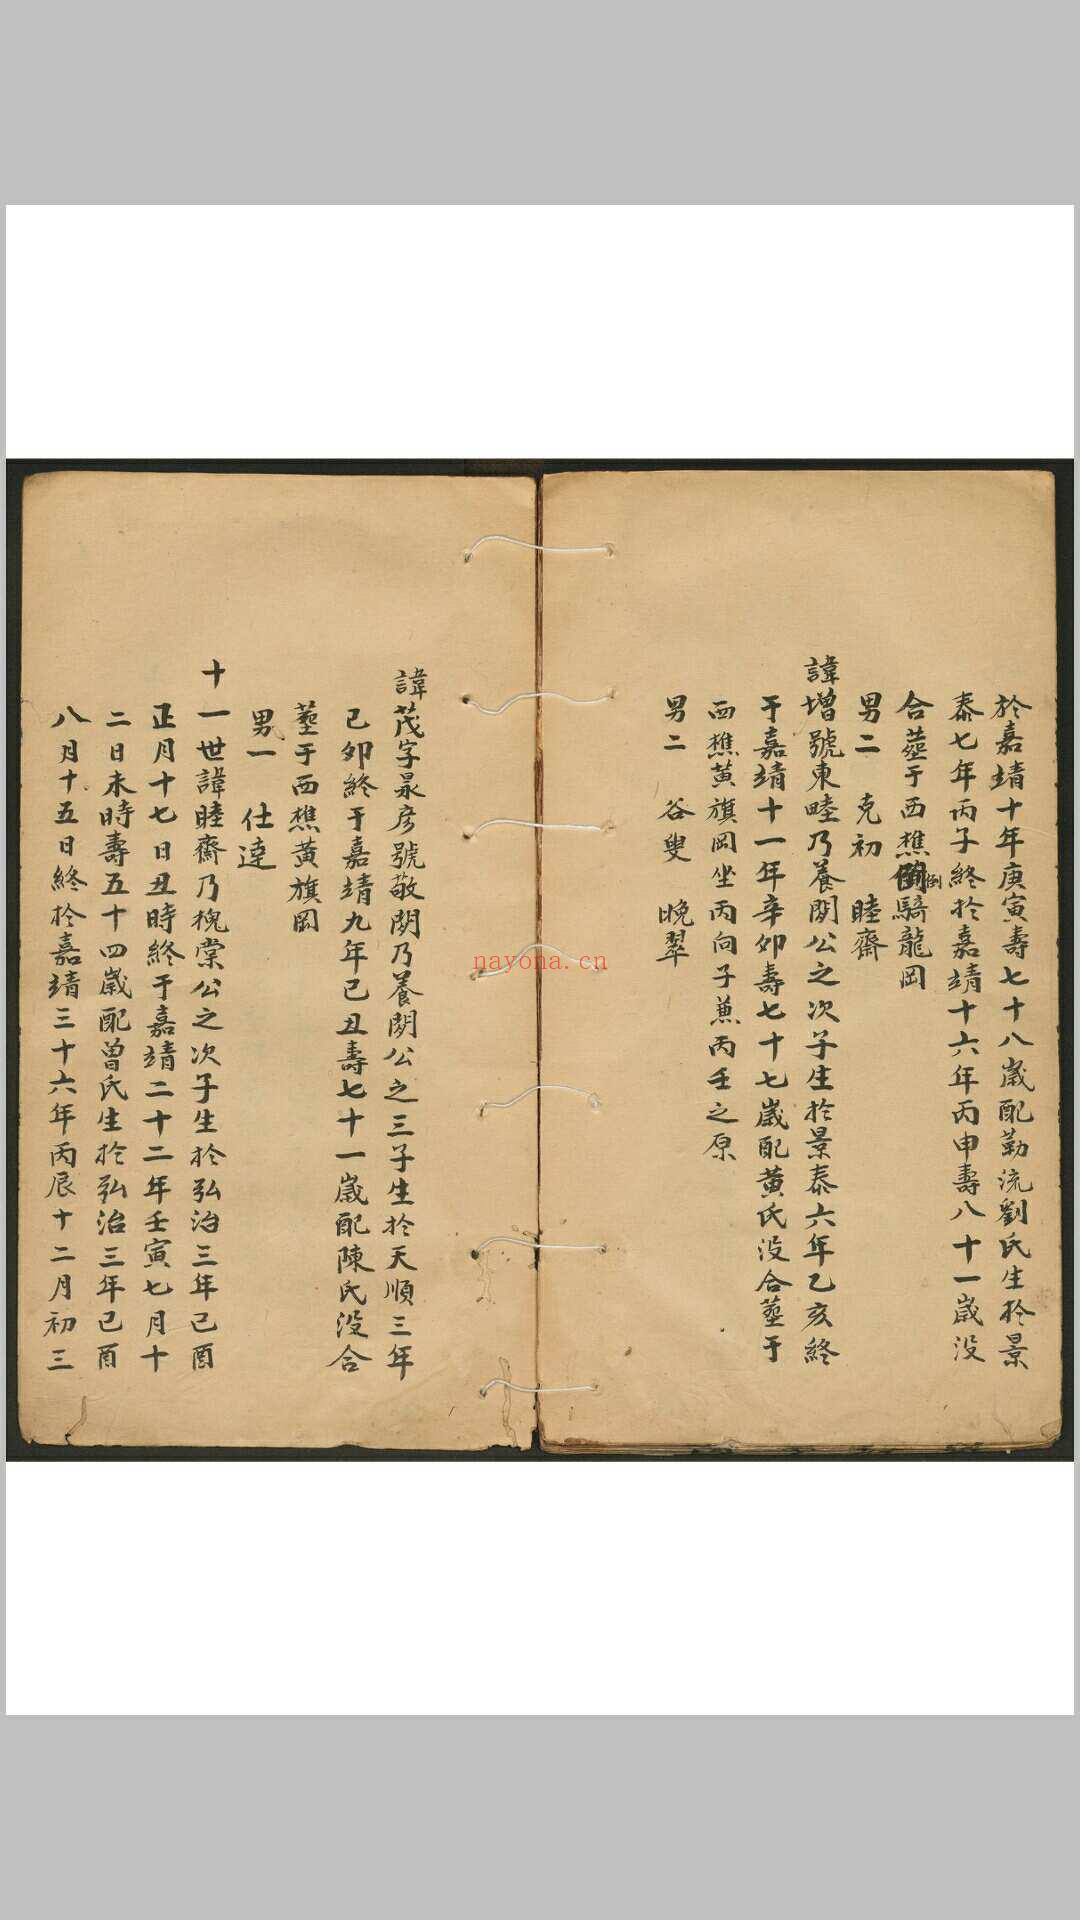 於嘉靖十年庚寅壽七十八歲配勒流劉氏生於景
泰七年丙子終於嘉靖十六年丙申壽八十一歲没
合塟于西樵倒騎龍岡
男二 克初 睦齋
諱增號東睦乃養閒公之次子生於景泰六年乙亥終
于嘉靖十一年辛卯壽七十七歲配黄氏没合塟于
西樵黄旗岡坐丙向子兼丙壬之原
男二 谷叟 晚翠
諱茂字彦號敬閒乃養閒公之三子生於天順三年
己卯終于嘉靖九年己丑壽七十一歲配陳氏没合
塟于西樵黃旗岡
男一 仕達
十一世諱睦齋乃槐棠公之次子生於弘治三年己酉
正月十七日丑時終于嘉靖二十二年壬寅七月十
二日未時壽五十四歲配曽氏生於弘治三年己酉
八月十五日終於嘉靖三十六年丙辰十二月初三
nayona.cn